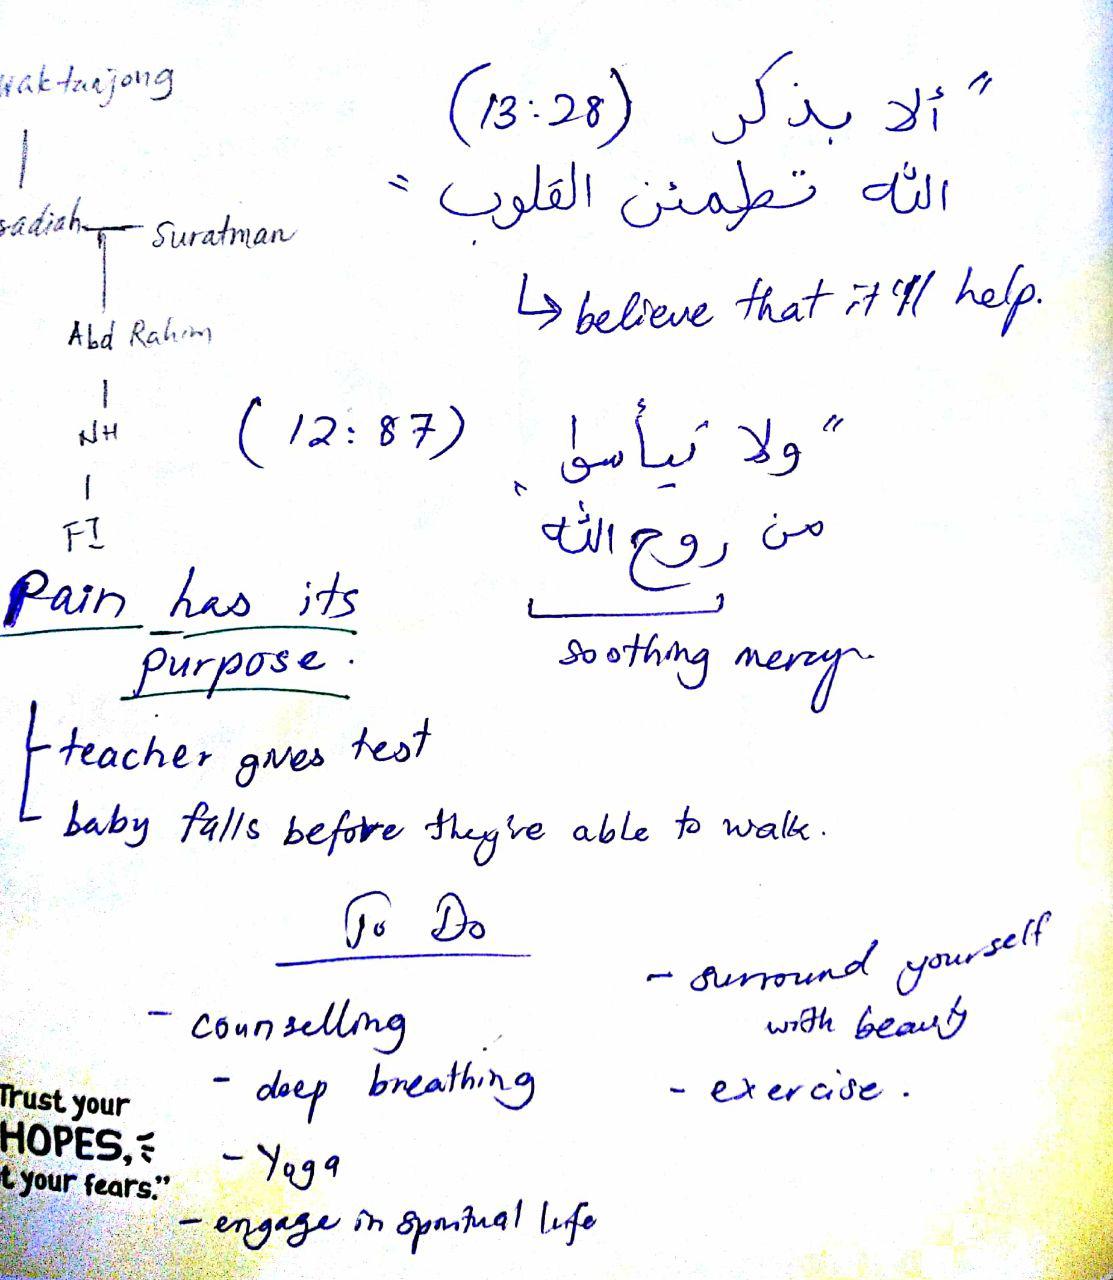 waktanjong
sadiah
Suratman
Abd Rahim
NH
FI
(13:28) "ألا بذكر
الله تطمئن القلوب"
↳ believe that it'll help.
(12:87) "ولا تيأسوا
من روح الله"
soothing mercy
Pain has its
purpose.
teacher gives test
baby falls before they're able to walk.
To Do
- counselling
- deep breathing
- Yoga
- engage in spiritual life
- surround yourself
with beauty
- exercise.
Trust your
HOPES,
t your fears."